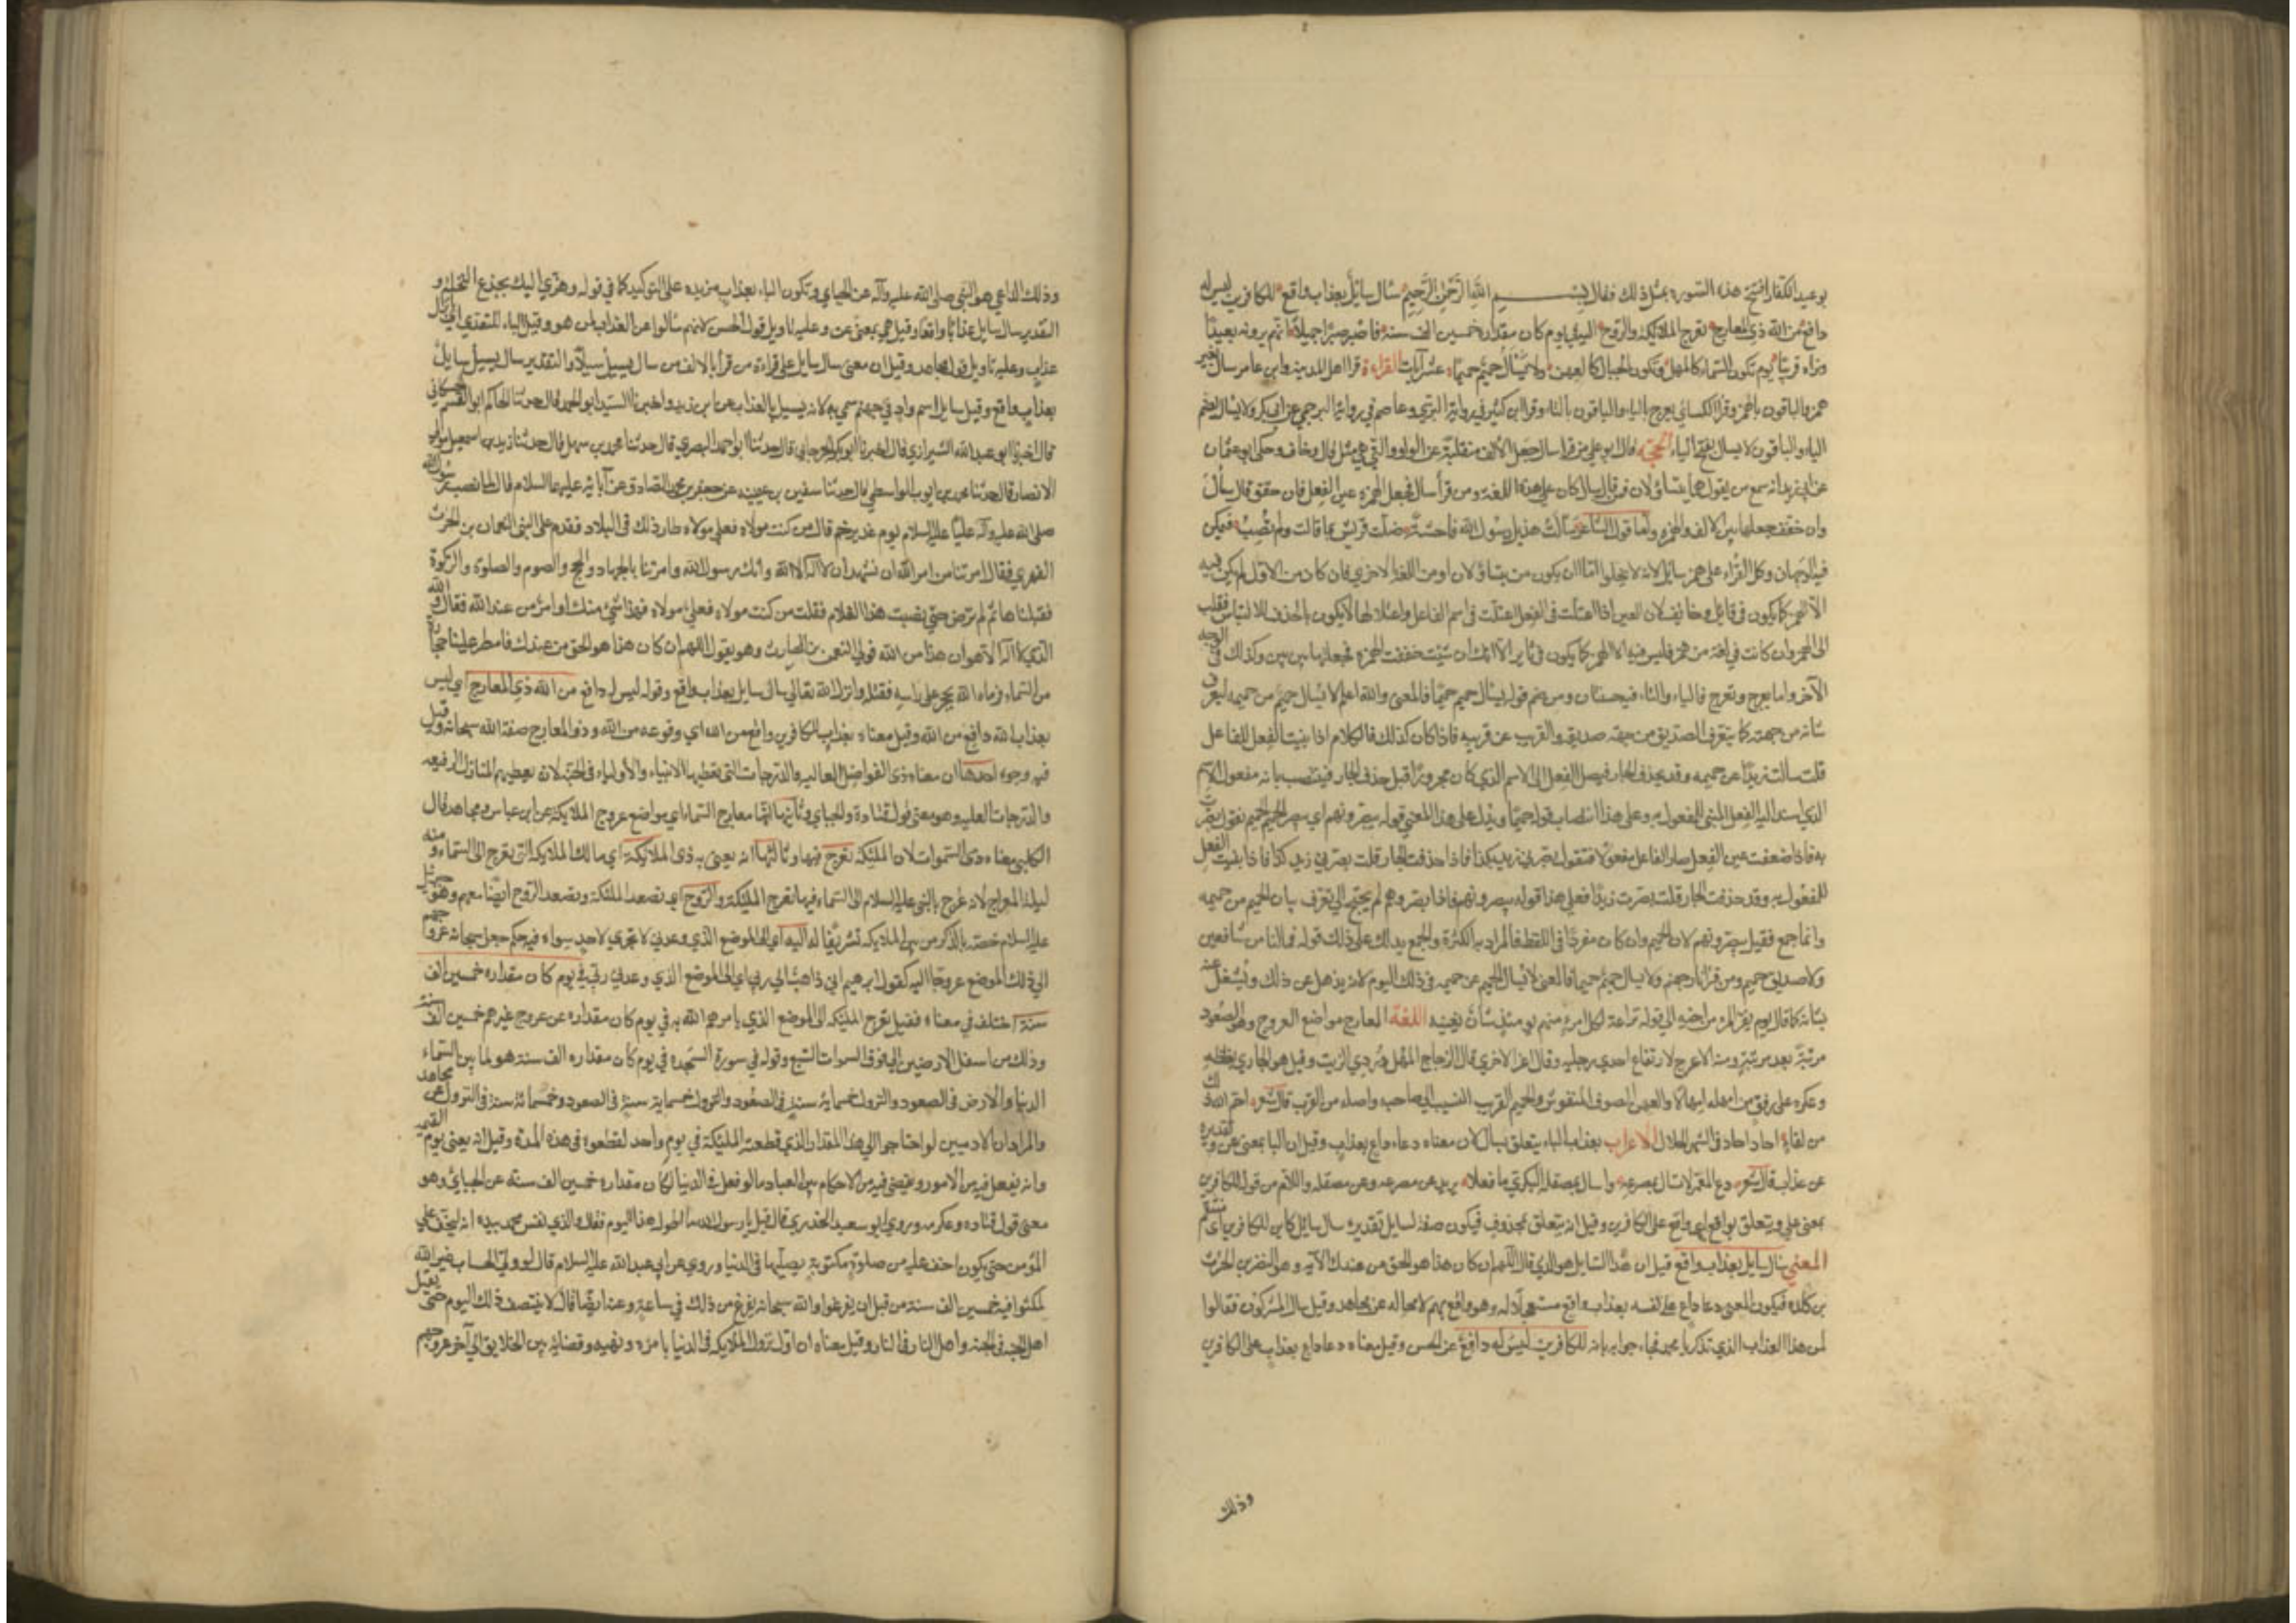 بوعيد الكفار افتتح هذه السورة بمثل ذلك فقال بسم الله الرحمن الرحيم سأل سايل بعذاب واقع للكافرين ليس له
دافع من الله ذي المعارج تعرج الملائكة والروح اليه في يوم كان مقداره خمسين الف سنة فاصبر صبرا جميلا انهم يرونه بعيدا
ونراه قريبا يوم تكون السماء كالمهل وتكون الجبال كالعهن ولا يسأل حميم حميما عشر آيات القراءة قرا اهل المدينة وابن عامر سال بغير
همز والباقون بالهمز وقرا الكسائي يعرج بالياء والباقون بالتاء وقرا ابن كثير في رواية البزي وعاصم في رواية البرجمي عن ابي بكر ولا يسال بضم
الياء والباقون لا يسال بفتح الياء الحجة قال ابو علي من قرا سال جعل الالف منقلبة عن الواو والتي هي مثل قال وخاف وحكى ابو عثمان
عن ابي زيد انه سمع من يقول هما يتساولان فمن قال سال كان على هذه اللغة ومن قرأ سأل فجعل الهمزة عين الفعل فان حقق قال سأل
وان خفف جعلها بين الالف والهمزة واما قول الشاعر سالت هذيل رسول الله فاحشة ضلت قريش بما قالت ولم تصب فيمكن
فيه الوجهان وكل القراء على همز سايل لانه لا يخلوا اما ان يكون من يتساولان او من اللغة الاخرى فان كان من الاول لم يكن فيه
الا الهمز كما يكون في قائل وخائف لان العين اذا اعتلت في الفعل اعتلت في اسم الفاعل واعلالها لا يكون بالحذف للالتباس فقلب
الى الهمز وان كانت في لغة من همز فليس فيه الا الهمز كما يكون في ثاير الا انك ان شئت خففت الهمزة فجعلتها بين بين وكذلك في الوجه
الآخر واما يعرج وتعرج فالياء والتاء فيه حسنتان ومن ضم قوله يسال حميم حميما فالمعنى والله اعلم لا يسال حميم عن حميمه ليعرف
شانه من جهته كما يتعرف الصديق من جهة صديقه والقريب عن قريبه فاذا كان كذلك فالكلام اذا بنيت الفعل للفاعل
قلت سألت زيدا عن حميمه وقد يحذف الجار فيصل الفعل الى الاسم الذي كان مجرورا قبل حذف الجار فينتصب بانه مفعول الاسم
الذي اسند اليه الفعل المبني للمفعول به وعلى هذا انتصاب قوله حميما ويدل على هذا المعنى قوله يبصرونهم اي يبصر الحميم الحميم تقول بصرت
به فاذا ضعفت عين الفعل صار الفاعل مفعولا فتقول بصرني زيد بكذا فاذا حذفت الجار قلت بصرني زيد كذا فاذا بنيت الفعل
للمفعول به وقد حذفت الجار قلت بصرت زيدا فعلى هذا قوله يبصرونهم فاذا بصروهم لم يحتج الى تعرف بيان الحميم من حميمه
وانما جمع فقيل يبصرونهم لان الحميم وان كان مفردا في اللفظ فالمراد به الكثرة والجمع يدلك على ذلك قوله فما لنا من شافعين
ولا صديق حميم ومن قرا ولا يسال حميم حميما فالمعنى لا يسال الحميم عن حميمه في ذلك اليوم لانه يذهل عن ذلك ويشغل عنه
بشانه كما قال يوم يفر المرء من اخيه الى قوله تعالى لكل امرئ منهم يومئذ شأن يغنيه اللغة المعارج مواضع العروج وهو الصعود
مرتبة بعد مرتبة ومنه الاعرج لارتفاع احدى رجليه وقال عن الاخرى قال الزجاج المهل دردي الزيت وقيل هو الجاري بغلظه
وعكره على رفق من امهله امهالا والعهن الصوف المنفوش والحميم القريب النسيب الى صاحبه واصله من القرب قال شعر احم الله ذلك
من لقاء احاد احاد في الشهر الحلال الاعراب بعذاب الباء يتعلق بسال لان معناه دعا داع بعذاب وقيل ان الباء بمعنى عن وتقديره
عن عذاب قال شعر دع المغمر لا تسال بمصرعه واسال بمصقلة البكري ما فعلا يريد عن مصرعه وعن مصقلة واللام من قوله للكافرين
بمعنى على ويتعلق بواقع اي واقع على الكافرين وقيل انه يتعلق بمحذوف فيكون صفة لسايل تقديره سال سائل كاين للكافرين اي منهم
المعنى سأل سايل بعذاب واقع قيل ان هذا السايل هو الذي قال اللهم ان كان هذا هو الحق من عندك الآيه وهو النضر بن الحرث
بن كلده فيكون المعنى دعا داع على نفسه بعذاب واقع مستعجلا له وهو واقع بهم لا محاله عن مجاهد وقيل سال المشركون فقالوا
لمن هذا العذاب الذي تذكر يا محمد فجاء جوابه بانه للكافرين ليس له دافع عن الحسن وقيل معناه دعا داع بعذاب على الكافرين
وذلك
وذلك الداعي هو النبي صلى الله عليه وآله عن الجبائي وتكون الباء بعذاب مزيده على التوكيد كما في قوله وهزي اليك بجذع النخلة و
التقدير سال سايل عذابا واقعا وقيل هي بمعنى عن وعليه تاويل قول الحسن لانهم سألوا عن العذاب لمن هو وقيل الباء للتعدي اي بارسال
عذاب وعليه تاويل قول مجاهد وقيل ان معنى سال سايل على قراءة من قرأ بالالف من سال يسيل سيلا والتقدير سال يسيل سايل
بعذاب واقع وقيل سايل اسم واد في جهنم سمي به لانه يسيل بالعذاب عن ابن زيد واخبرنا السيد ابو الحمد قال حدثنا الحاكم ابو القسم الحسكاني
قال اخبرنا ابو عبد الله الشيرازي قال اخبرنا ابو بكر الجرجاني قال حدثنا ابو احمد البصري قال حدثنا محمد بن سهل قال حدثنا زيد بن اسمعيل مولى
الانصار قال حدثنا محمد بن ايوب الواسطي قال حدثنا سفين بن عيينه عن جعفر بن محمد الصادق عن آبائه عليهم السلام قال لما نصب رسول الله
صلى الله عليه وآله عليا عليه السلام يوم غدير خم قال من كنت مولاه فعلي مولاه طار ذلك في البلاد فقدم على النبي النعمان بن الحرث
الفهري فقال امرتنا من امر الله ان نشهد ان لا اله الا الله وانك رسول الله وامرتنا بالجهاد والحج والصوم والصلوة والزكوة
فقبلناها ثم لم ترض حتى نصبت هذا الغلام فقلت من كنت مولاه فعلي مولاه فهذا شيء منك او امر من عند الله فقال والله
الذي لا اله الا هو ان هذا من الله فولى النعمن بن الحارث وهو يقول اللهم ان كان هذا هو الحق من عندك فامطر علينا حجارة
من السماء فرماه الله بحجر على راسه فقتله وانزل الله تعالى سال سايل بعذاب واقع وقوله ليس له دافع من الله ذي المعارج اي ليس
بعذاب الله دافع من الله وقيل معناه بعذاب للكافرين واقع من الله اي وقوعه من الله وذو المعارج صفة الله سبحانه وقيل
فيه وجوه احدها ان معناه ذي الفواضل العاليه والدرجات التي يعطيها الانبياء والاولياء في الجنة لانه يعطيهم المنازل الرفيعه
والدرجات العليه وهو معنى قول قتادة والجبائي وثانيها انها معارج السماء اي مواضع عروج الملايكة عن ابن عباس ومجاهد قال
الكلبي معناه ذي السموات لان الملئكة تعرج فيها وثالثها انه يعني به ذي الملايكة اي مالك الملايكة التي تعرج الى السماء ومنه
ليلة المعراج لانه عرج بالنبي عليه السلام الى السماء فيها تعرج الملئكة والروح اي تصعد الملئكة ويصعد الروح ايضا معهم وهو جبرئيل
عليه السلام خصه بالذكر من بين الملايكة تشريفا له اليه اي الى الموضع الذي وعدني لا يجري لاحد سواه فيه حكم جعل سبحانه عروجهم
الى ذلك الموضع عروجا اليه كقول ابرهيم اني ذاهب الى ربي اي الى الموضع الذي وعدني ربي في يوم كان مقداره خمسين الف
سنة اختلف في معناه فقيل تعرج الملئكة الى الموضع الذي يامرهم الله به في يوم كان مقداره عن عروج غيرهم خمسين الف سنة
وذلك من اسفل الارضين الى فوق السموات السبع وقوله في سورة السجده في يوم كان مقداره الف سنة هو لما بين السماء
الدنيا والارض في الصعود والنزول خمساية سنة في الصعود وخمسمائة سنة في النزول عن مجاهد
والمراد ان الادميين لو احتاجوا الى هذا المقدار الذي قطعته الملئكة في يوم واحد لقطعوه في هذه المدة وقيل انه يعني يوم القيمة
وانه يفعل فيه من الامور ويقضي فيه من الاحكام بين العباد ما لو فعل في الدنيا لكان مقداره خمسين الف سنة عن الجبائي وهو
معنى قول قتاده وعكرمه وروى ابو سعيد الخدري قال قيل يا رسول الله ما اطول هذا اليوم فقال والذي نفس محمد بيده انه ليخف على
المؤمن حتى يكون اخف عليه من صلوة مكتوبة يصليها في الدنيا وروي عن ابي عبد الله عليه السلام قال لو ولي الحساب غير الله
لمكثوا فيه خمسين الف سنة من قبل ان يفرغوا والله سبحانه يفرغ من ذلك في ساعة وعنه ايضا قال لا ينتصف ذلك اليوم حتى يقيل
اهل الجنة في الجنة واهل النار في النار وقيل معناه ان اول نزول الملايكة في الدنيا بامره ونهيه وقضائه بين الخلايق الى آخر عروجهم